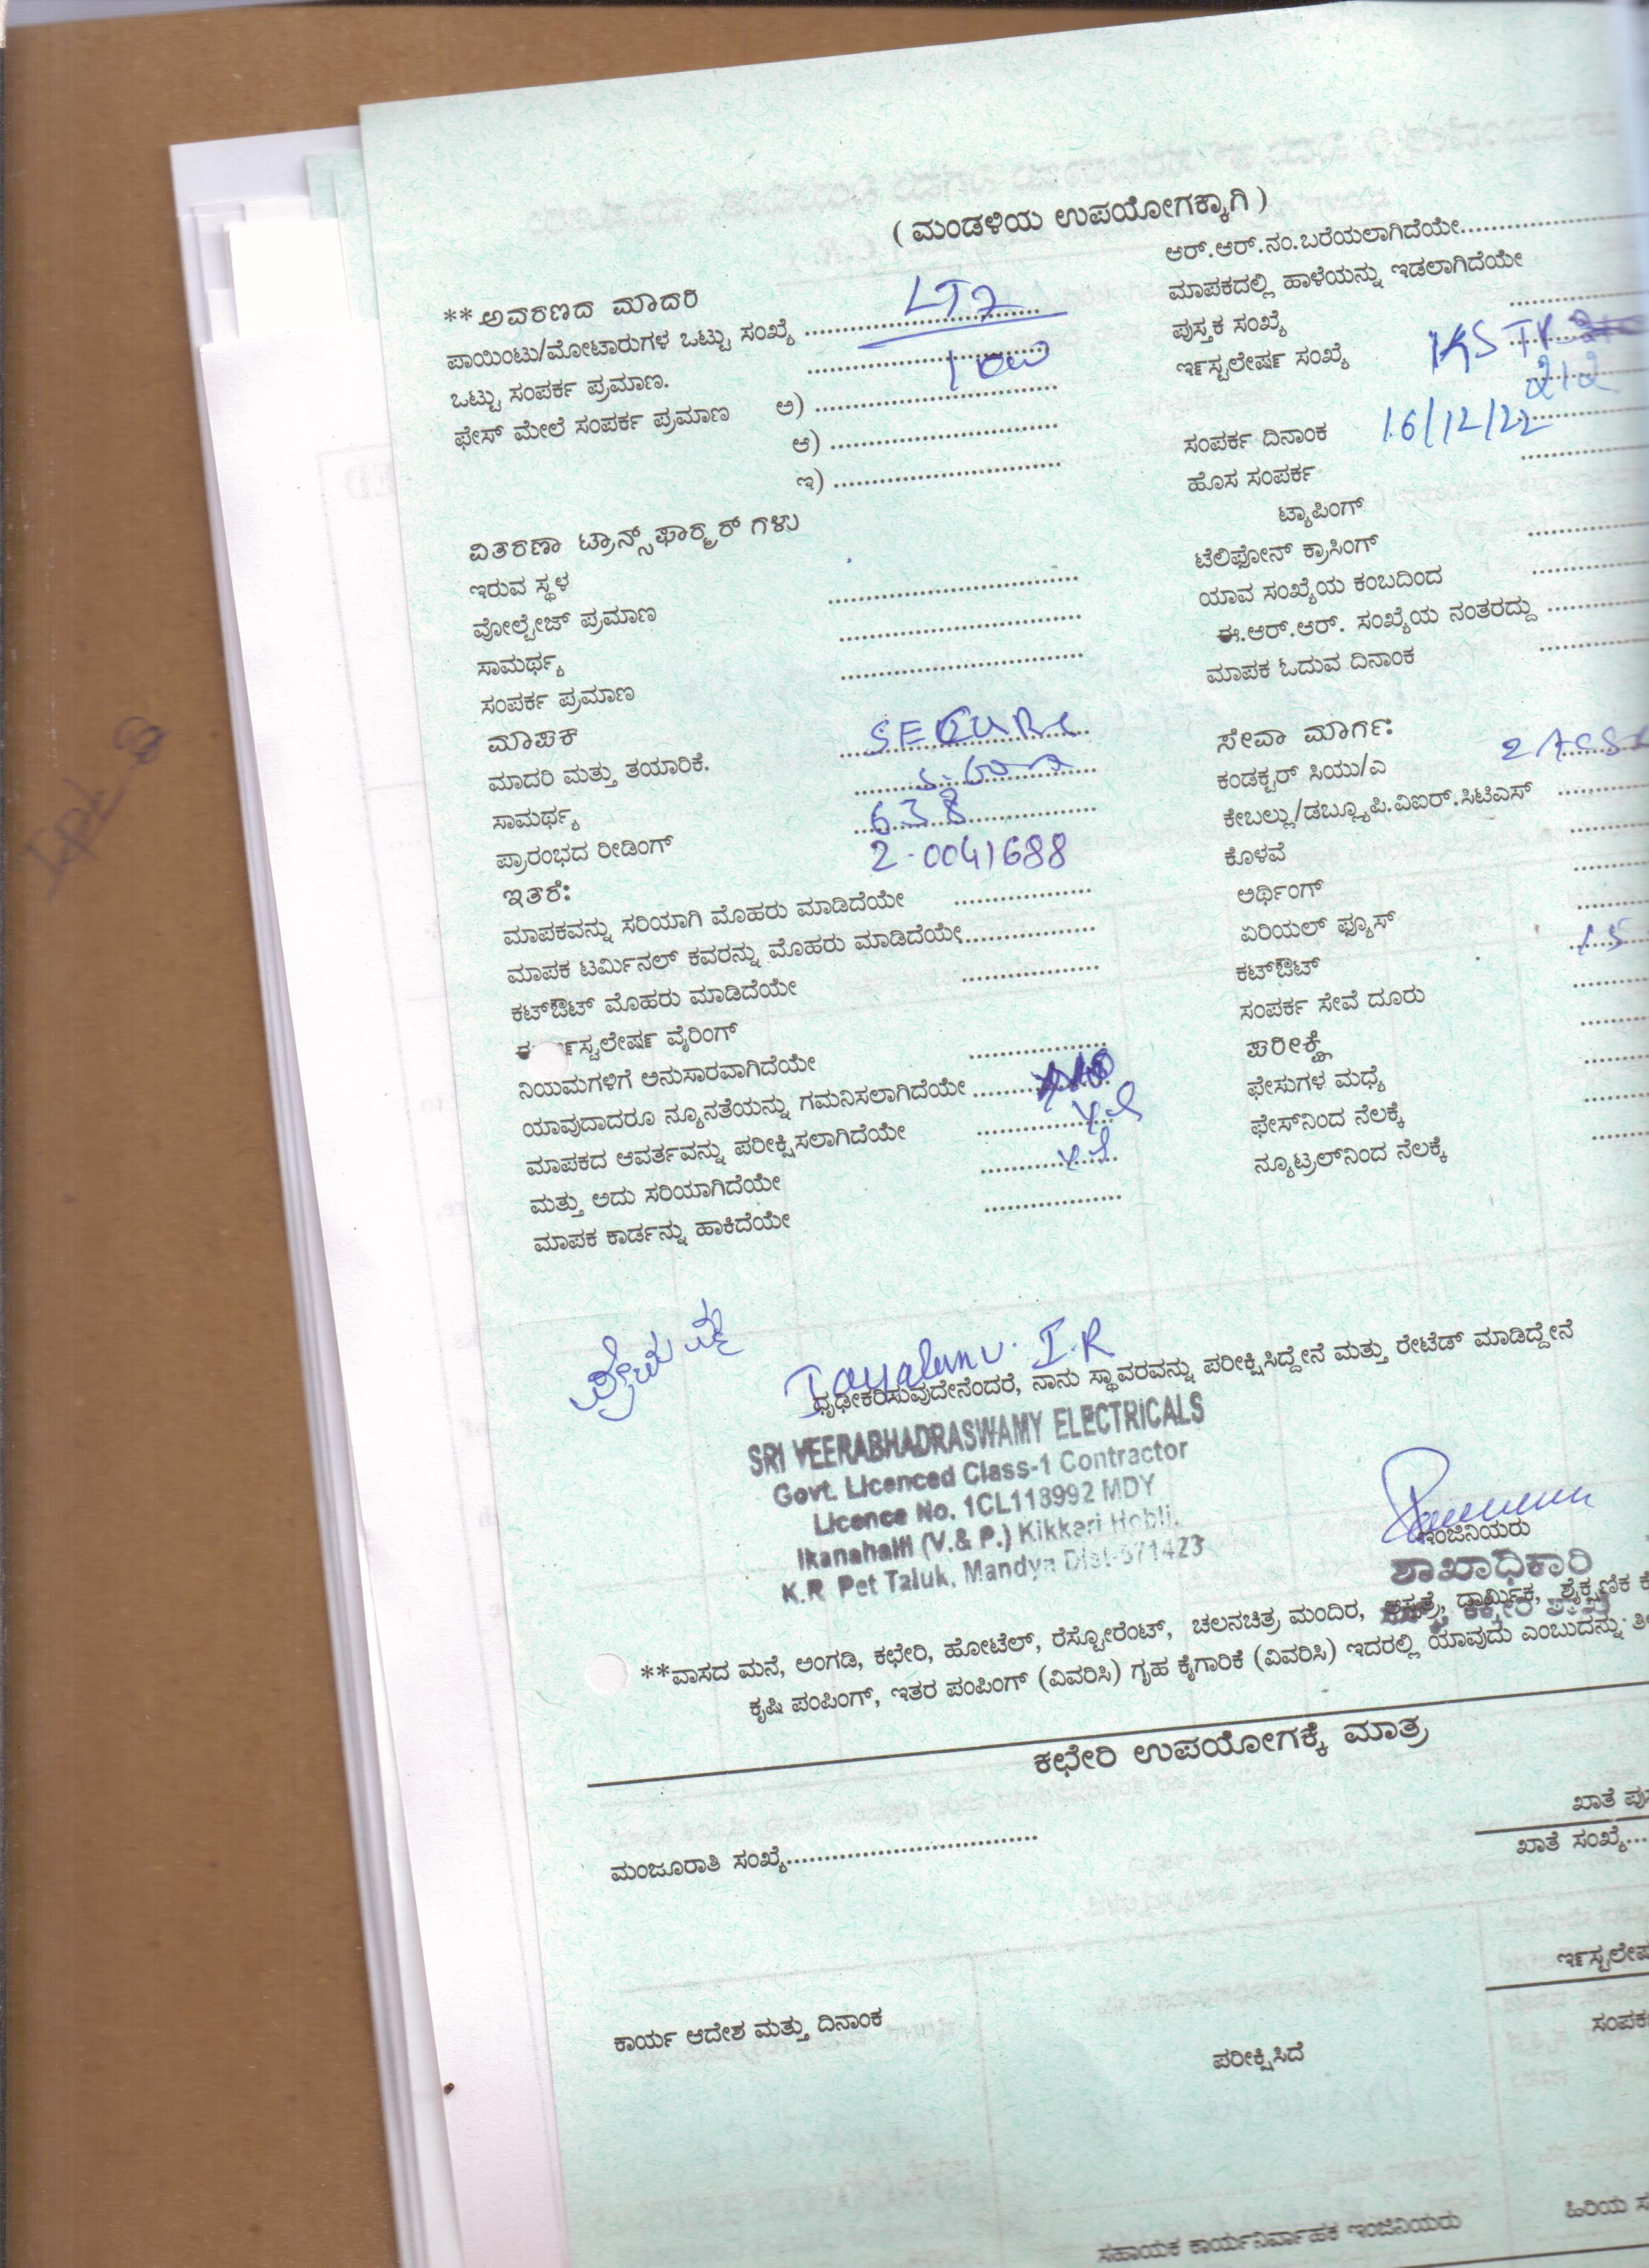 ( ಮಂಡಳಿಯ ಉಪಯೋಗಕ್ಕಾಗಿ )
** ಅವರಣದ ಮಾದರಿ
ಪಾಯಿಂಟು/ಮೋಟಾರುಗಳ ಒಟ್ಟು ಸಂಖ್ಯೆ LT7
ಒಟ್ಟು ಸಂಪರ್ಕ ಪ್ರಮಾಣ.
ಫೇಸ್ ಮೇಲೆ ಸಂಪರ್ಕ ಪ್ರಮಾಣ ಅ)
ಆ)
ಇ)
ವಿತರಣಾ ಟ್ರಾನ್ಸ್‌ಫಾರ್‍ಮರ್ ಗಳು
ಇರುವ ಸ್ಥಳ
ವೋಲ್ಟೇಜ್ ಪ್ರಮಾಣ
ಸಾಮರ್ಥ್ಯ
ಸಂಪರ್ಕ ಪ್ರಮಾಣ
ಮಾಪಕ
ಮಾದರಿ ಮತ್ತು ತಯಾರಿಕೆ. SECURE
ಸಾಮರ್ಥ್ಯ 638
ಪ್ರಾರಂಭದ ರೀಡಿಂಗ್ 2-0041688
ಇತರೆ:
ಮಾಪಕವನ್ನು ಸರಿಯಾಗಿ ಮೊಹರು ಮಾಡಿದೆಯೇ
ಮಾಪಕ ಟರ್ಮಿನಲ್ ಕವರನ್ನು ಮೊಹರು ಮಾಡಿದೆಯೇ
ಕಟ್‌ಔಟ್ ಮೊಹರು ಮಾಡಿದೆಯೇ
ವೈರಿಂಗ್
ನಿಯಮಗಳಿಗೆ ಅನುಸಾರವಾಗಿದೆಯೇ
ಯಾವುದಾದರೂ ನ್ಯೂನತೆಯನ್ನು ಗಮನಿಸಲಾಗಿದೆಯೇ
ಮಾಪಕದ ಆವರ್ತವನ್ನು ಪರೀಕ್ಷಿಸಲಾಗಿದೆಯೇ
ಮತ್ತು ಅದು ಸರಿಯಾಗಿದೆಯೇ
ಮಾಪಕ ಕಾರ್ಡನ್ನು ಹಾಕಿದೆಯೇ
ಆರ್.ಆರ್.ನಂ.ಬರೆಯಲಾಗಿದೆಯೇ
ಮಾಪಕದಲ್ಲಿ ಹಾಳೆಯನ್ನು ಇಡಲಾಗಿದೆಯೇ
ಪುಸ್ತಕ ಸಂಖ್ಯೆ
ಇನ್‌ಸ್ಟಲೇಷನ್ ಸಂಖ್ಯೆ
212
ಸಂಪರ್ಕ ದಿನಾಂಕ 16/12/22
ಹೊಸ ಸಂಪರ್ಕ
ಟ್ಯಾಪಿಂಗ್
ಟೆಲಿಫೋನ್ ಕ್ರಾಸಿಂಗ್
ಯಾವ ಸಂಖ್ಯೆಯ ಕಂಬದಿಂದ
ಈ.ಆರ್.ಆರ್. ಸಂಖ್ಯೆಯ ನಂತರದ್ದು
ಮಾಪಕ ಓದುವ ದಿನಾಂಕ
ಸೇವಾ ಮಾರ್ಗ:
ಕಂಡಕ್ಟರ್ ಸಿಯು/ಎ
ಕೇಬಲ್ಲು/ಡಬ್ಲ್ಯೂಪಿ.ವಿಐಆರ್.ಸಿಟಿಎಸ್
ಕೊಳವೆ
ಅರ್ಥಿಂಗ್
ಏರಿಯಲ್ ಫ್ಯೂಸ್
ಕಟ್‌ಔಟ್
ಸಂಪರ್ಕ ಸೇವೆ ದೂರು
ಪರೀಕ್ಷೆ
ಫೇಸುಗಳ ಮಧ್ಯೆ
ಫೇಸ್‌ನಿಂದ ನೆಲಕ್ಕೆ
ನ್ಯೂಟ್ರಲ್‌ನಿಂದ ನೆಲಕ್ಕೆ
ಧೃಢೀಕರಿಸುವುದೇನೆಂದರೆ, ನಾನು ಸ್ಥಾವರವನ್ನು ಪರೀಕ್ಷಿಸಿದ್ದೇನೆ ಮತ್ತು ರೇಟೆಡ್ ಮಾಡಿದ್ದೇನೆ
SRI VEERABHADRASWAMY ELECTRICALS
Govt. Licenced Class-1 Contractor
Licence No. 1CL118992 MDY
Ikanahalli (V.& P.) Kikkeri Hobli,
K.R. Pet Taluk, Mandya Dist-571423
ಇಂಜಿನಿಯರು
ಶಾಖಾಧಿಕಾರಿ
**ವಾಸದ ಮನೆ, ಅಂಗಡಿ, ಕಛೇರಿ, ಹೋಟೆಲ್, ರೆಸ್ಟೋರೆಂಟ್, ಚಲನಚಿತ್ರ ಮಂದಿರ, ಆಸ್ಪತ್ರೆ, ಧಾರ್ಮಿಕ, ಶೈಕ್ಷಣಿಕ
ಕೃಷಿ ಪಂಪಿಂಗ್, ಇತರ ಪಂಪಿಂಗ್ (ವಿವರಿಸಿ) ಗೃಹ ಕೈಗಾರಿಕೆ (ವಿವರಿಸಿ) ಇದರಲ್ಲಿ ಯಾವುದು ಎಂಬುದನ್ನು
ಕಛೇರಿ ಉಪಯೋಗಕ್ಕೆ ಮಾತ್ರ
ಖಾತೆ
ಮಂಜೂರಾತಿ ಸಂಖ್ಯೆ
ಖಾತೆ ಸಂಖ್ಯೆ
ಕಾರ್ಯ ಆದೇಶ ಮತ್ತು ದಿನಾಂಕ
ಪರೀಕ್ಷಿಸಿದೆ
ಸಹಾಯಕ ಕಾರ್ಯನಿರ್ವಾಹಕ ಇಂಜಿನಿಯರು
ಹಿರಿಯ